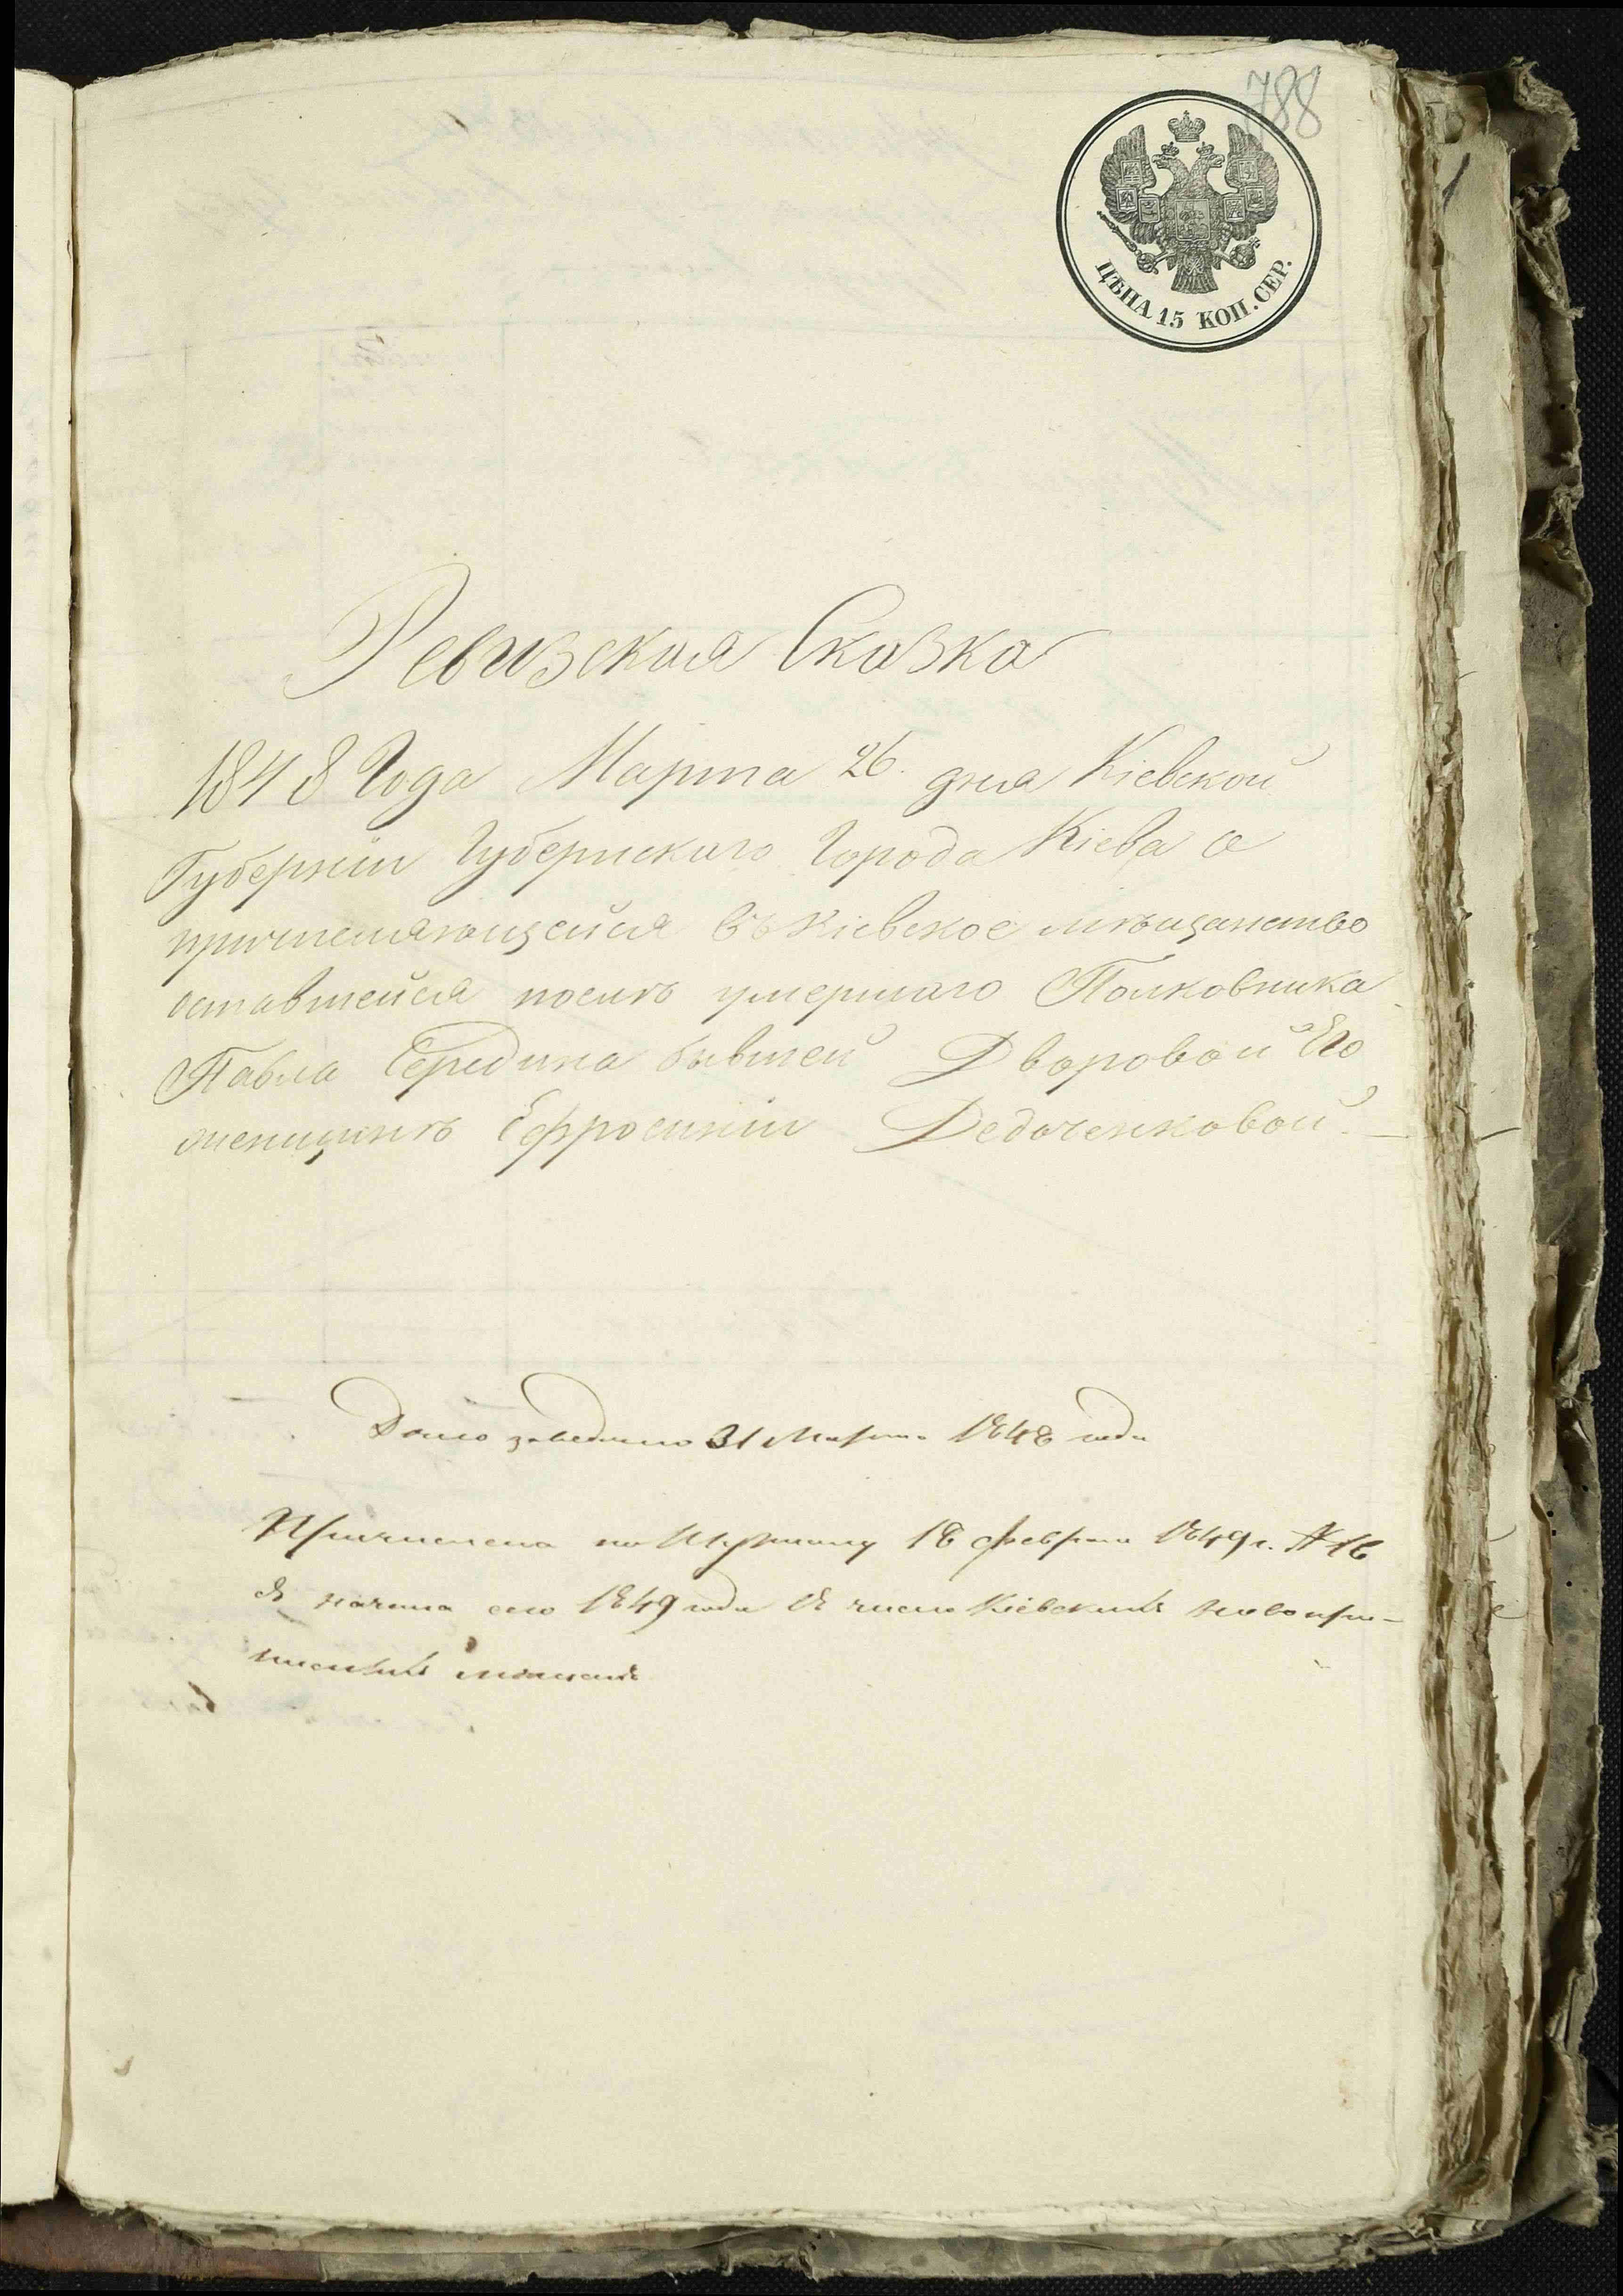 788
ЦѢНА 15 КОП. СЕР.
Ревизская Сказка
1848 Года Марта 26 дня Кіевской
Губерніи Губернскаго Города Кіева о
причисляющейся въ Кіевское мѣщанство
оставшейся послѣ умершаго Полковника
Павла Середина бывшей Дворовой Его
женщинѣ Ефросиніи Дедоченковой.
Дело заведено 31 Марта 1848 года
Причислена по Журналу 18 февраля 1849 г. № 16
съ начала сего 1849 года въ число Кіевскихъ новопри-
писныхъ мѣщанъ